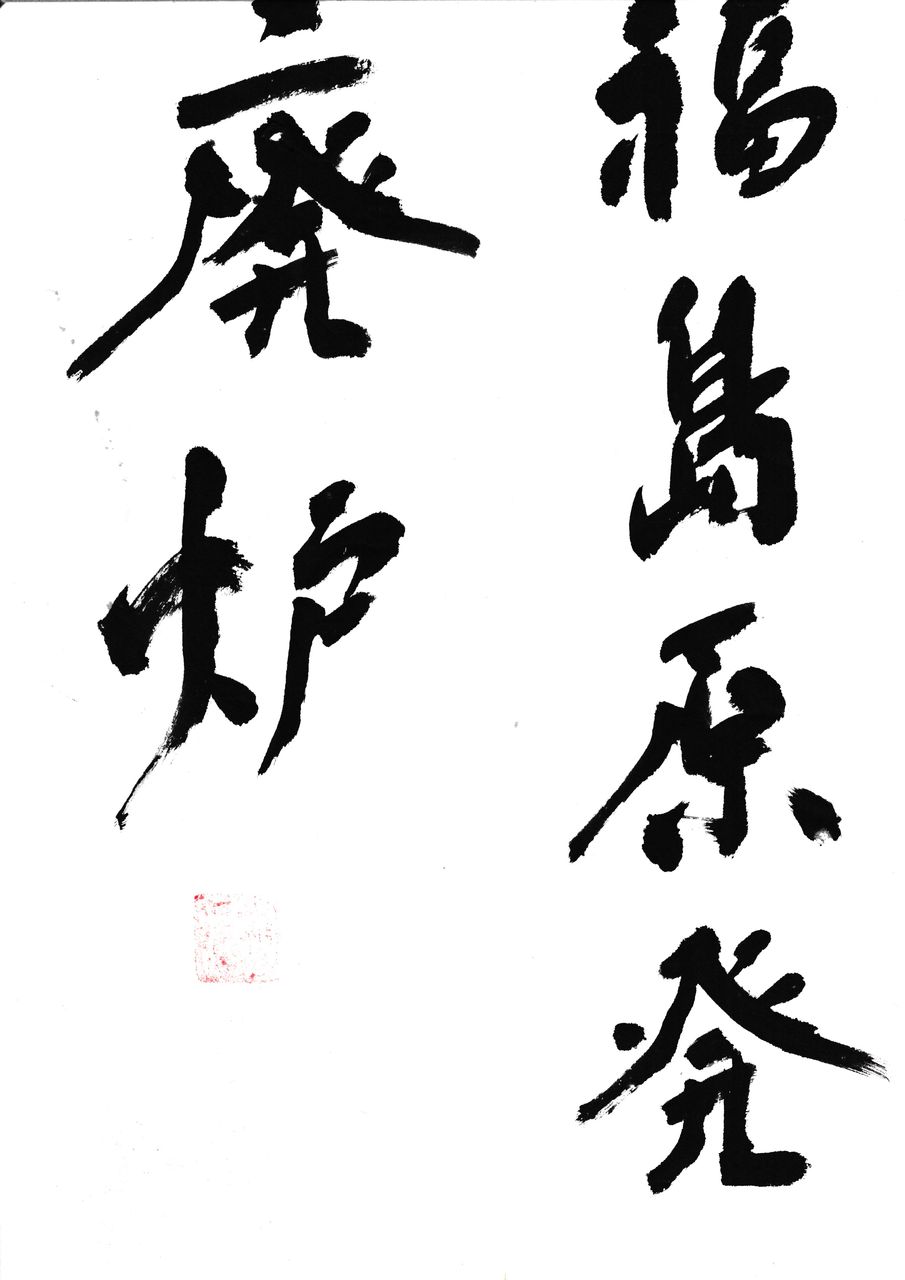 福島原発
廃炉